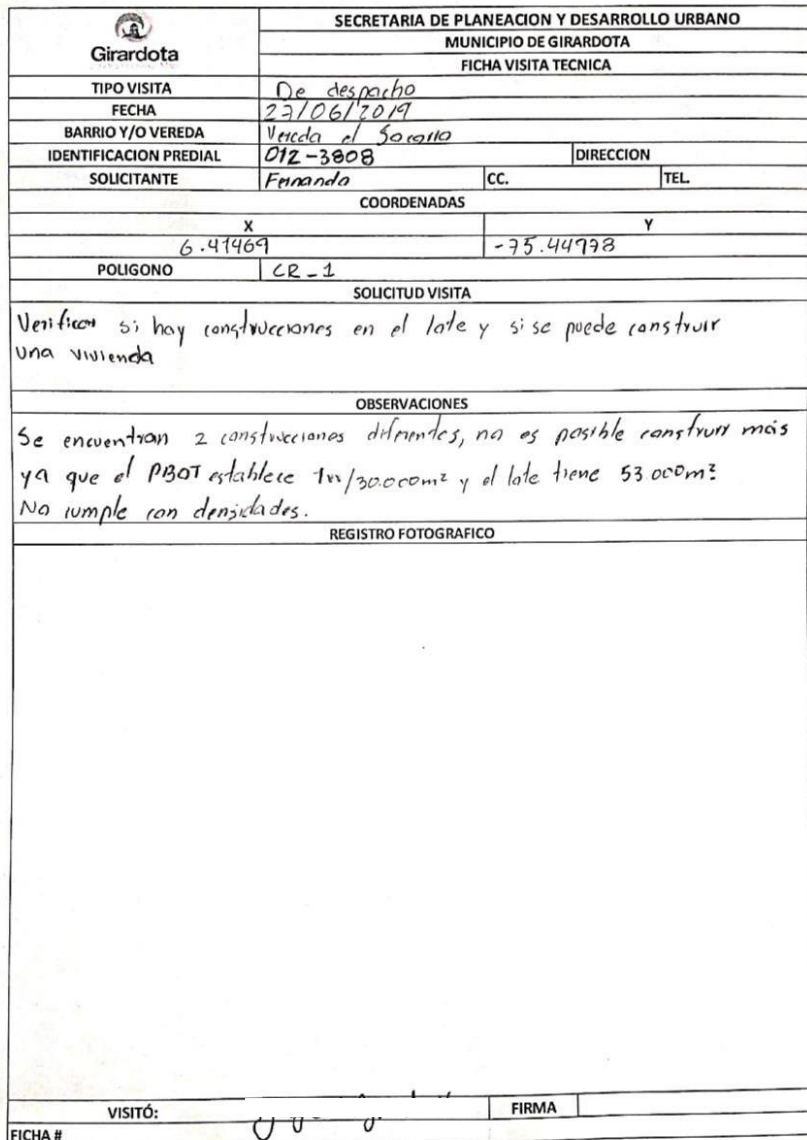 Girardota
SECRETARIA DE PLANEACION Y DESARROLLO URBANO
MUNICIPIO DE GIRARDOTA
FICHA VISITA TECNICA
TIPO VISITA De despacho
FECHA 27/06/2019
BARRIO Y/O VEREDA Vereda el Socorro
IDENTIFICACION PREDIAL 012-3808 DIRECCION
SOLICITANTE Fernando CC. TEL.
COORDENADAS
X Y
6.41469 -75.44978
POLIGONO CR_1
SOLICITUD VISITA
Verificar si hay construcciones en el lote y si se puede construir
una vivienda
OBSERVACIONES
Se encuentran 2 construcciones diferentes, no es posible construir más
ya que el PBOT establece /30.000m² y el lote tiene 53 000m²
No cumple con densidades.
REGISTRO FOTOGRAFICO
VISITÓ: FIRMA
FICHA #